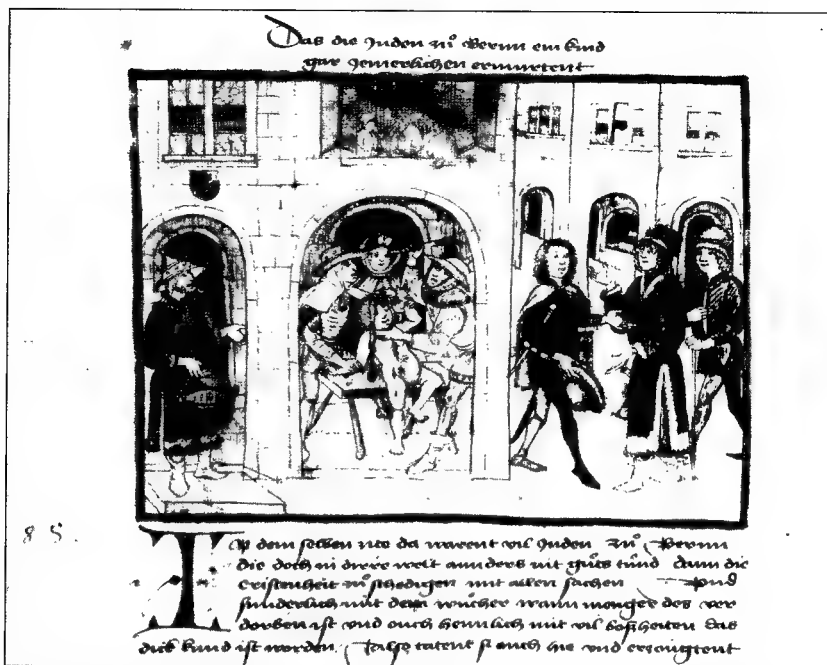 Das die Juden zů Bernn ein kind
gar jemerlichen ermurtent
85.
In dem selben zite da warent vil Juden zů Bernn
die doch in dirre welt annders nit gůts tůnd dann die
cristenheit zů schedigen mit allen sachen Vnd
sunderlich mit dem wůcher wann menger des ver
dorben ist vnd ouch heimlich mit vil boßheiten das
dick kund ist worden / Also tatent si auch hie vnd erzougtent